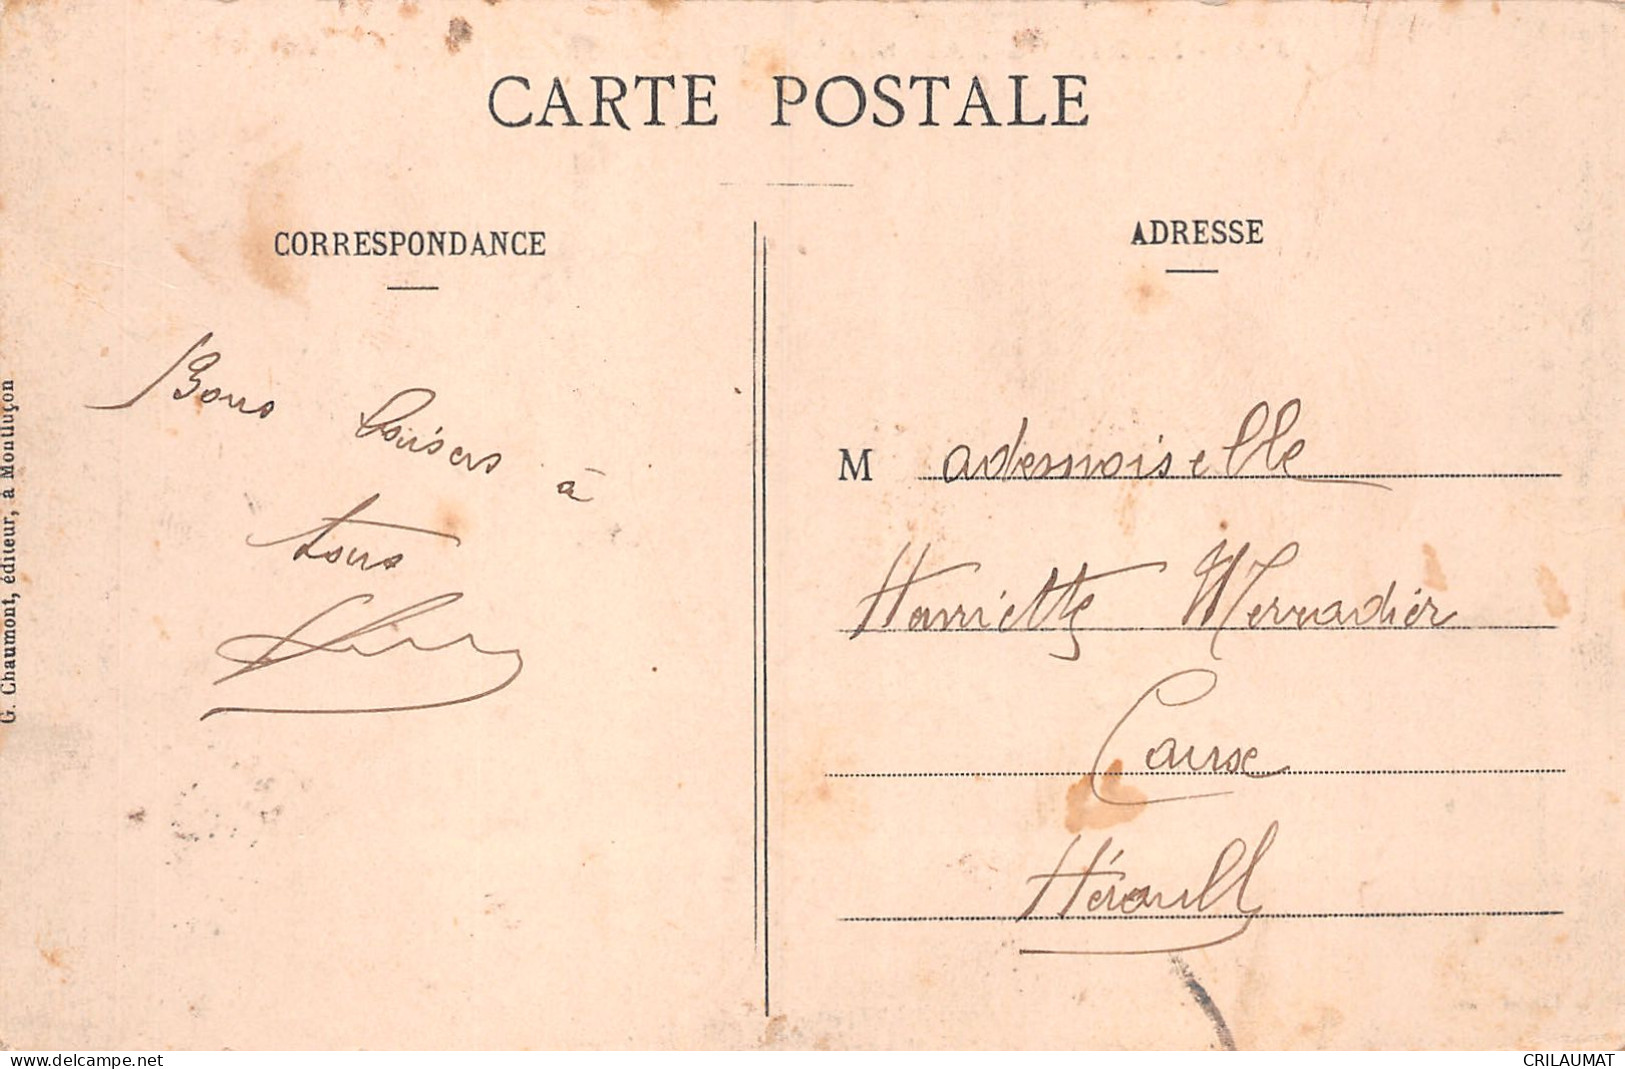 CARTE POSTALE
CORRESPONDANCE
Bons baisers à
tous
G. Chaumont, éditeur, à Montluçon
ADRESSE
M ademoiselle
Henriette
Causse
Hérault
www.delcampe.net
CRILAUMAT